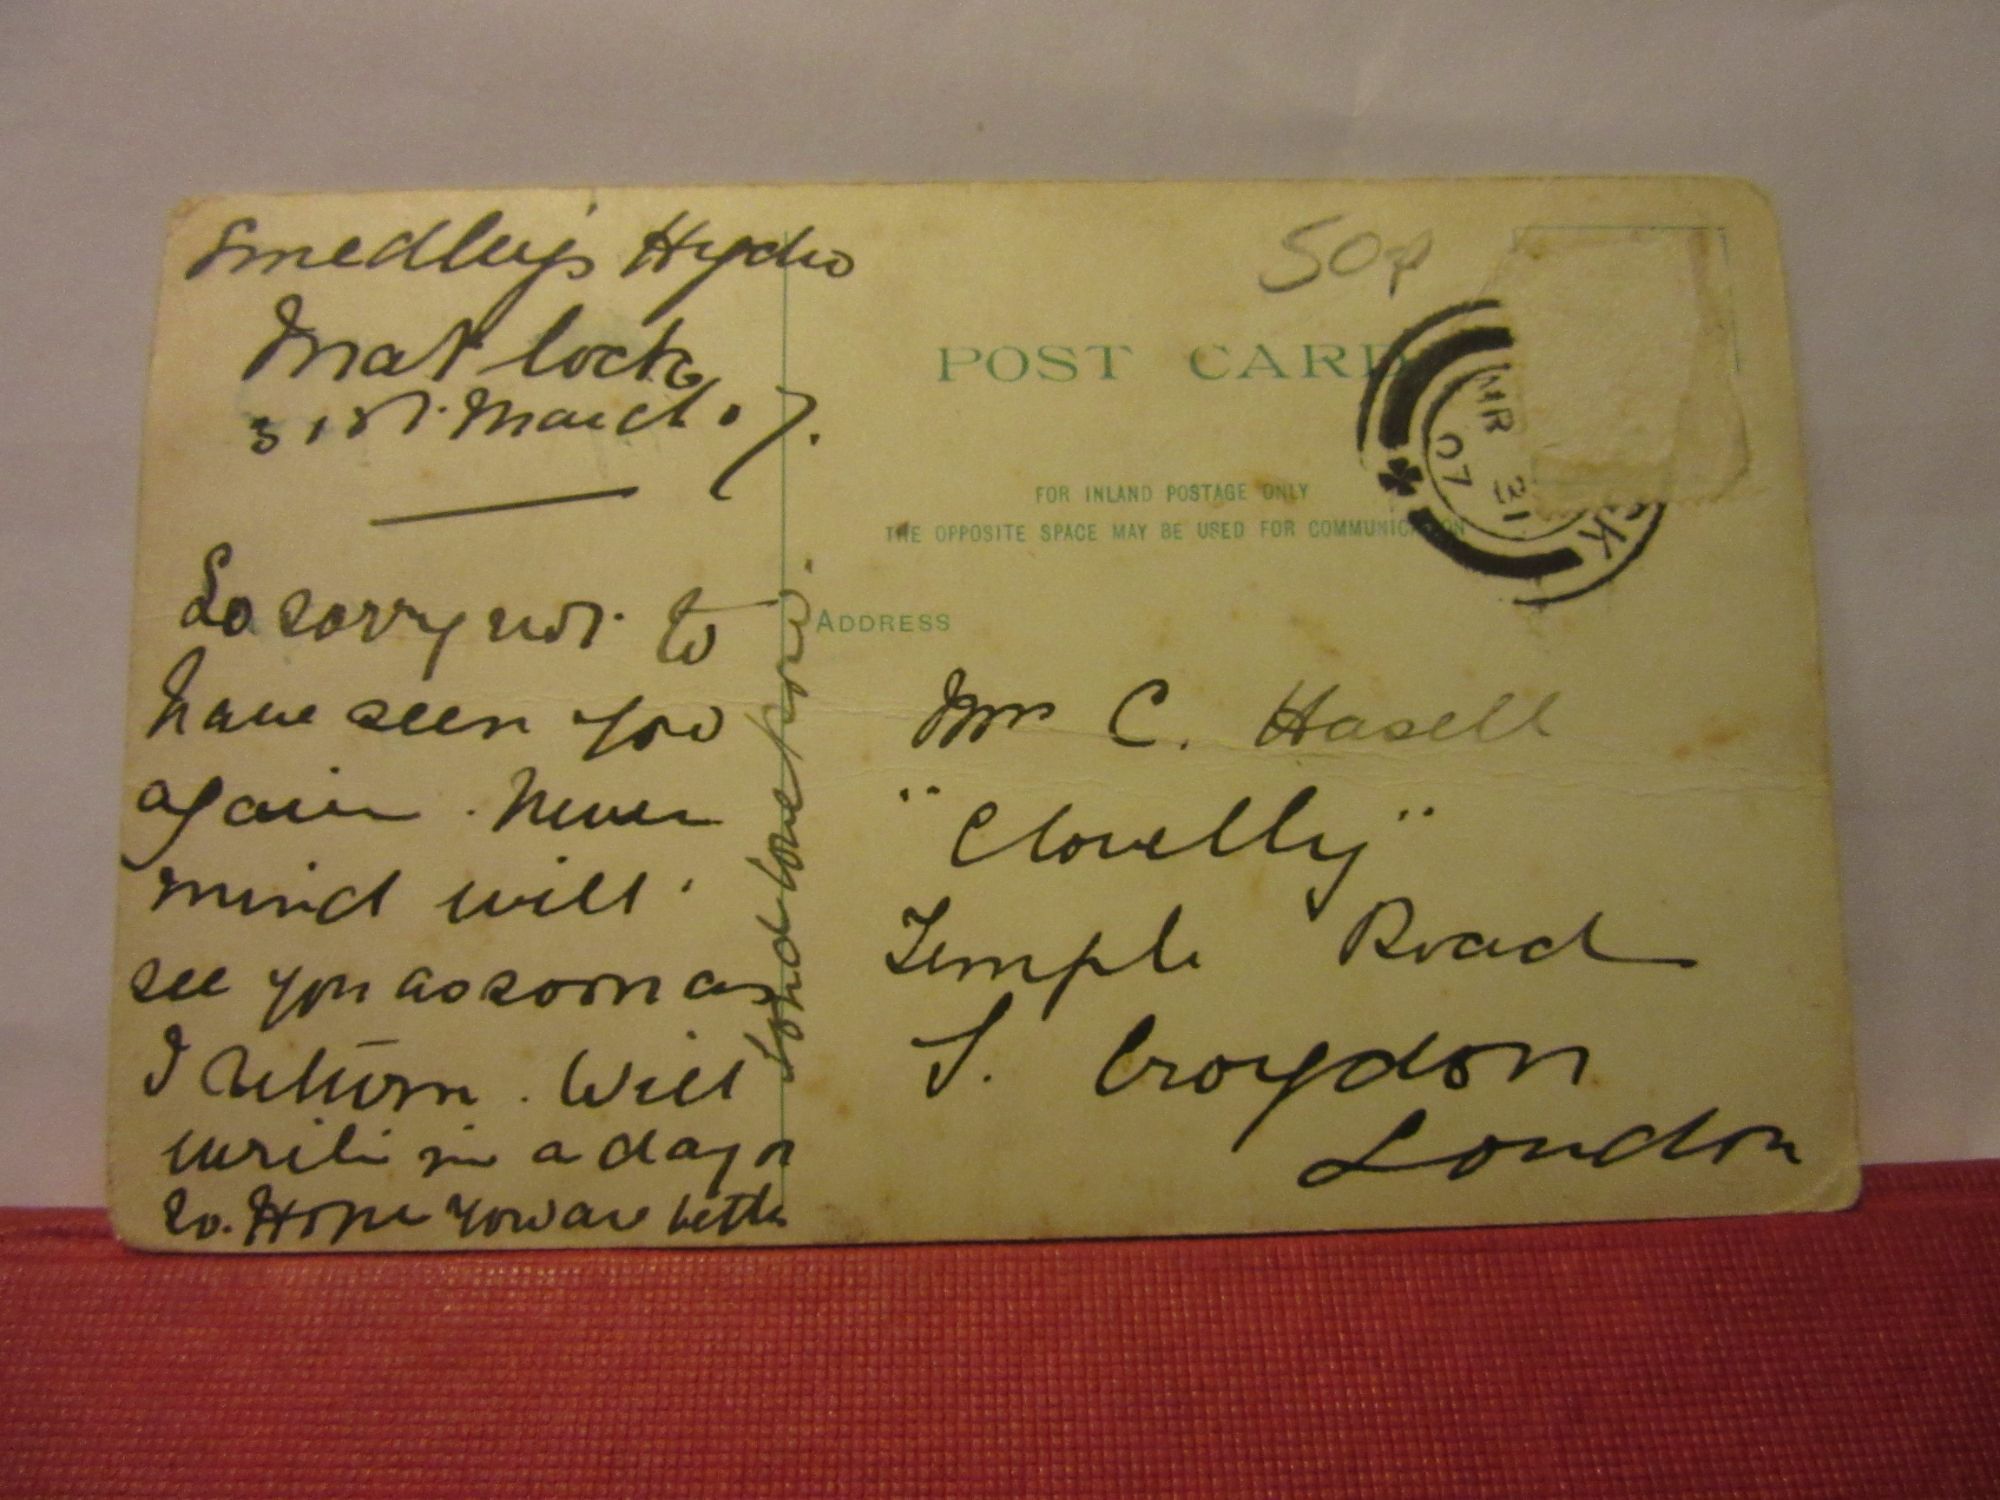 Smedley's Hydro
Matlock
31st. March. 07.
So sorry not. to
have seen you
again. Never
mind will
see you as soon as
I return. Will
write in a day or
so. Hope you are better
Fond love
50p
POST CARD
FOR INLAND POSTAGE ONLY
THE OPPOSITE SPACE MAY BE USED FOR COMMUNICATION
MR 31
07
CK
ADDRESS
C. Hasell
"Clovelly"
Temple Road
S. Croydon
London